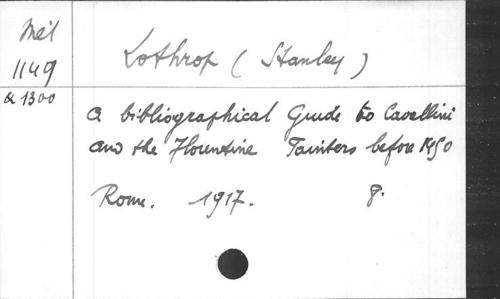 Mél
1149
& 1300
Lothrop (Stanley)
A bibliographical Guide to Cavallini
and the Florentine Painters before 1450
Rome. 1917. 8.